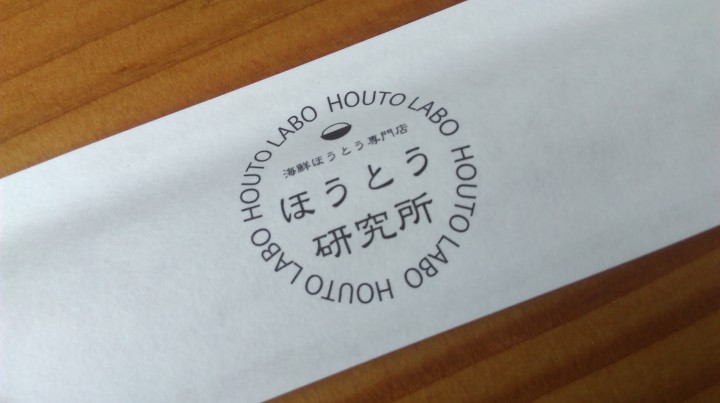 HOUTO LABO HOUTO LABO HOUTO LABO HOUTO LABO HOUTO LABO
海鮮ほうとう専門店
ほうとう
研究所